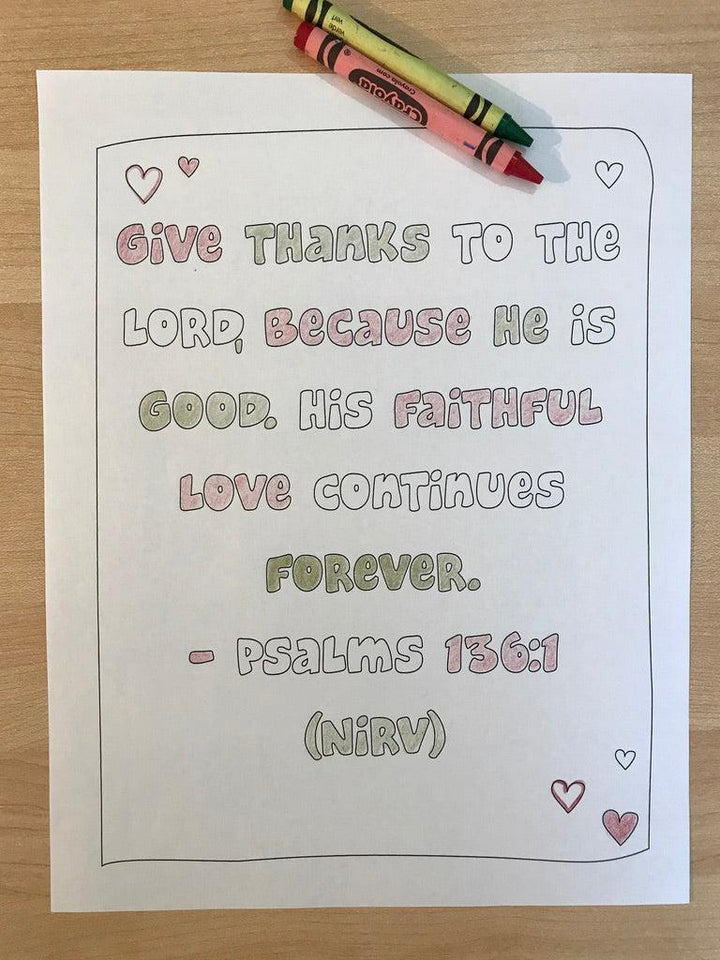 verde
vert
Crayola
Crayola.com
GiVE THANKS TO THE
LORD, BECAUSE HE iS
GOOD. HiS FAiTHFUL
LOVE CONTiNUES
FOREVER.
- PSALMS 136:1
(NiRV)